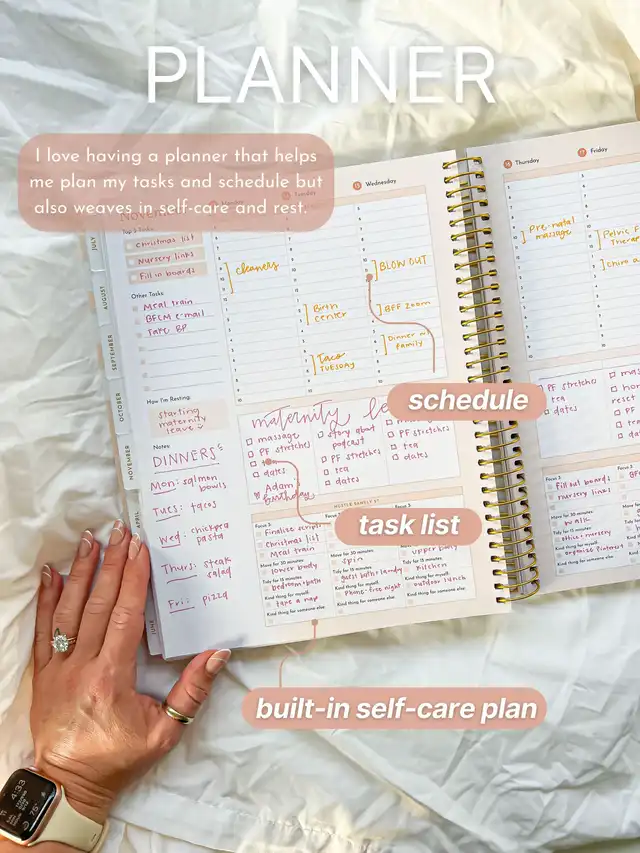 PLANNER
I love having a planner that helps
me plan my tasks and schedule but
also weaves in self-care and rest.
JULY
AUGUST
SEPTEMBER
OCTOBER
NOVEMBER
APRIL
JUNE
November
Christmas list
Nursery links
Fill in boards
Other Tasks
Meal train
BFCM e-mail
Take BP
How I'm Resting
starting
maternity
leave
Notes
DINNERS
Mon: salmon
bowls
Tues: tacos
Wed: chickpea
pasta
Thurs: steak
salad
Fri: pizza
Monday
Tuesday
Wednesday
cleaners
Birth
center
Taco
TUESDAY
BLOW OUT
BFF Zoom
Dinner w
family
schedule
maternity
massage
PF stretches
dates
Adam
birthday
story about
podcast
PF stretches
tea
dates
PF stretches
tea
dates
task list
Focus 3:
Finalize
Christmas list
Meal train
Move for 30 minutes:
lower body
Tidy for 15 minutes:
bedroom + bath
Kind thing for myself:
take a nap
Kind thing for someone else:
Move for 30 minutes:
spin
Tidy for 15 minutes:
guest bath + laundry
Kind thing for myself:
Phone-free night
Kind thing for someone else:
upper body
Tidy for 15 minutes:
kitchen
Kind thing for myself:
outdoor lunch
Kind thing for someone else:
built-in self-care plan
16 Thursday
17 Friday
Pre-natal
massage
Pelvic
chiro
PF stretches
tea
dates
Focus 3:
Fill out boards
nursery links
Move for 30 minutes:
walk
Tidy for 15 minutes:
office + nursery
Kind thing for myself:
organize Pinterest
Kind thing for someone else:
4:33
75°